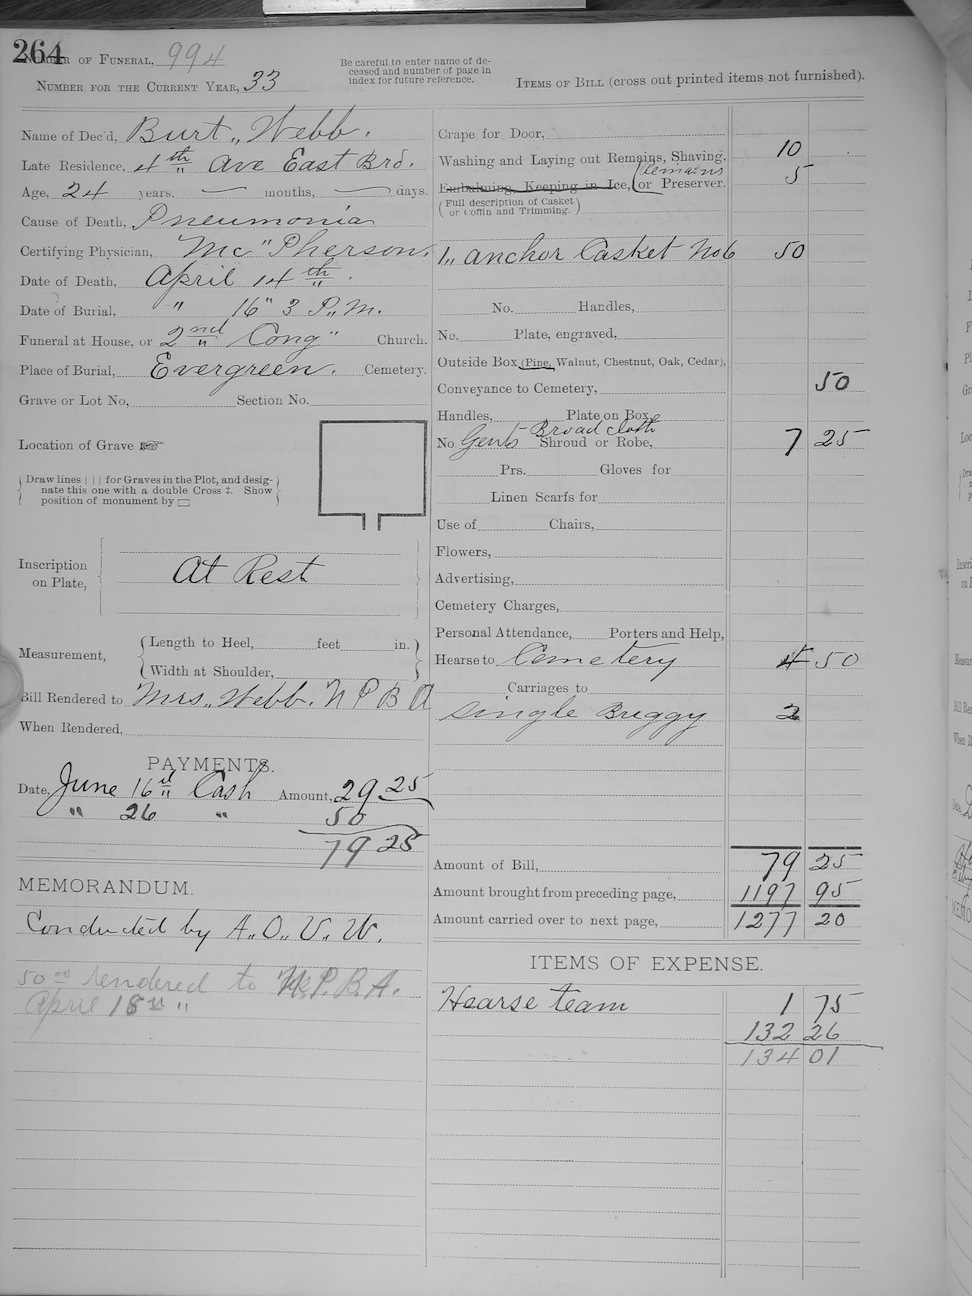 264
Number of Funeral, 994
Number for the Current Year, 33
Be careful to enter name of de-
ceased and number of page in
index for future reference.
Items of Bill (cross out printed items not furnished).
Name of Dec'd, Burt „ Webb.
Late Residence, 4th „ Ave East Brd.
Age, 24 years, — months, — days.
Cause of Death, Pneumonia
Certifying Physician, Mc" Pherson.
Date of Death, April 14th „.
Date of Burial, " 16" 3 P„ M.
Funeral at House, or 2nd „ Cong" Church.
Place of Burial, Evergreen. Cemetery.
Grave or Lot No, Section No.
Location of Grave ☞
Draw lines | | | for Graves in the Plot, and desig-
nate this one with a double Cross ‡. Show
position of monument by ▭
Inscription
on Plate, At Rest
Measurement, Length to Heel, feet in.
Width at Shoulder,
Bill Rendered to Mrs„ Webb. N P B A
When Rendered,
PAYMENTS.
Date, June 16th „ Cash Amount, 29 25
" 26 " 50
79 25
MEMORANDUM.
Conducted by A„ O„ U„ W.
50 00 rendered to N.P.B.A.
April 18th "
Crape for Door,
Washing and Laying out Remains, Shaving, 10
Remains
Embalming, Keeping in Ice, or Preserver. 5
(Full description of Casket
or Coffin and Trimming.)
1„ anchor Casket No 6 50
No. Handles,
No. Plate, engraved,
Outside Box (Pine, Walnut, Chestnut, Oak, Cedar),
Conveyance to Cemetery, 50
Handles, Plate on Box,
Broad cloth
No. Gents Shroud or Robe, 7 25
Prs. Gloves for
Linen Scarfs for
Use of Chairs,
Flowers,
Advertising,
Cemetery Charges,
Personal Attendance, Porters and Help,
Hearse to Cemetery 4 50
Carriages to
Single Buggy 2
Amount of Bill, 79 25
Amount brought from preceding page, 1197 95
Amount carried over to next page, 1277 20
ITEMS OF EXPENSE.
Hearse team 1 75
132 26
134 01